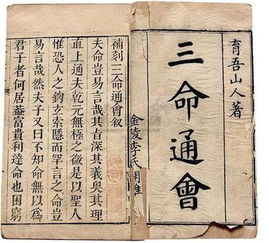 育吾山人著
三命通會
金陵李氏
補刻三命通會叙
夫命豈易言哉其旨深其義奧其理
直上通夫乾元無極之後是以聖人
惟恐人之鉤玄索隱而罕言之命豈
易言哉然夫子又曰不知命無以為
君子者何居葢富貴利達命也困窮